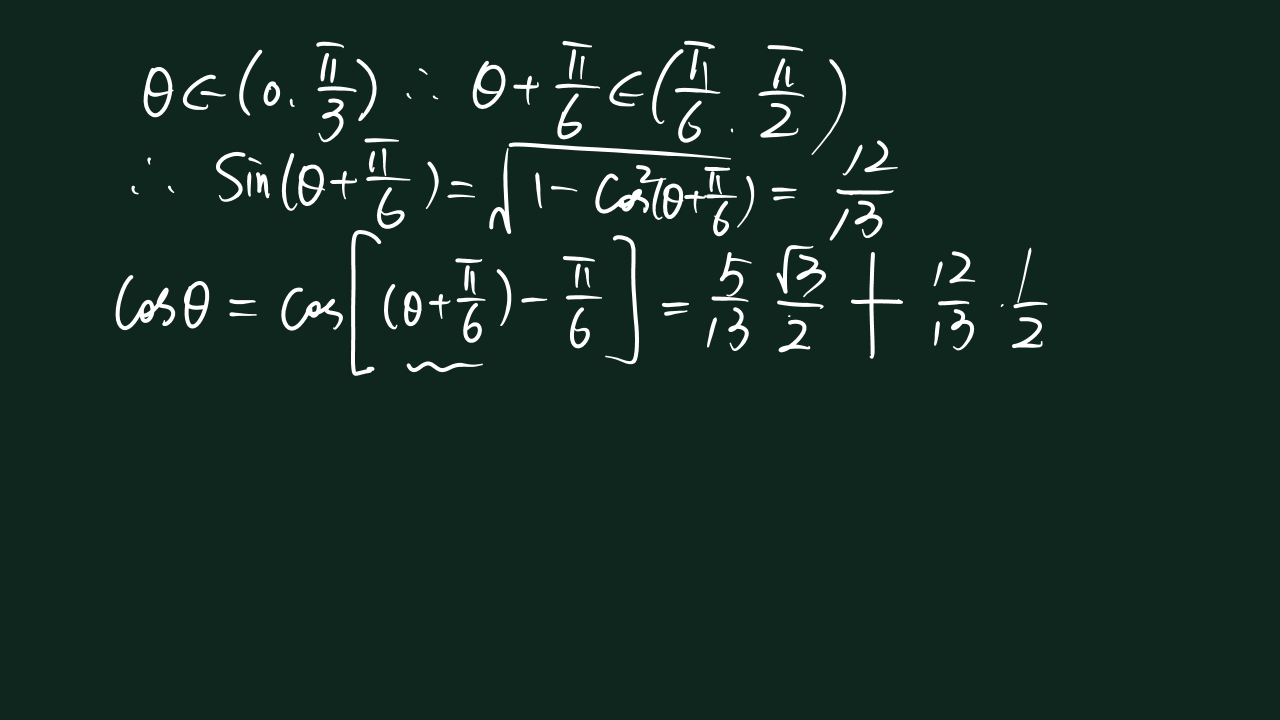 θ∈(0, π/3) ∴ θ+π/6∈(π/6, π/2)
∴ Sin(θ+π/6)=√(1-Cos²(θ+π/6))= 12/13
Cosθ = Cos[(θ+π/6)-π/6] = 5/13 √3/2 + 12/13 · 1/2